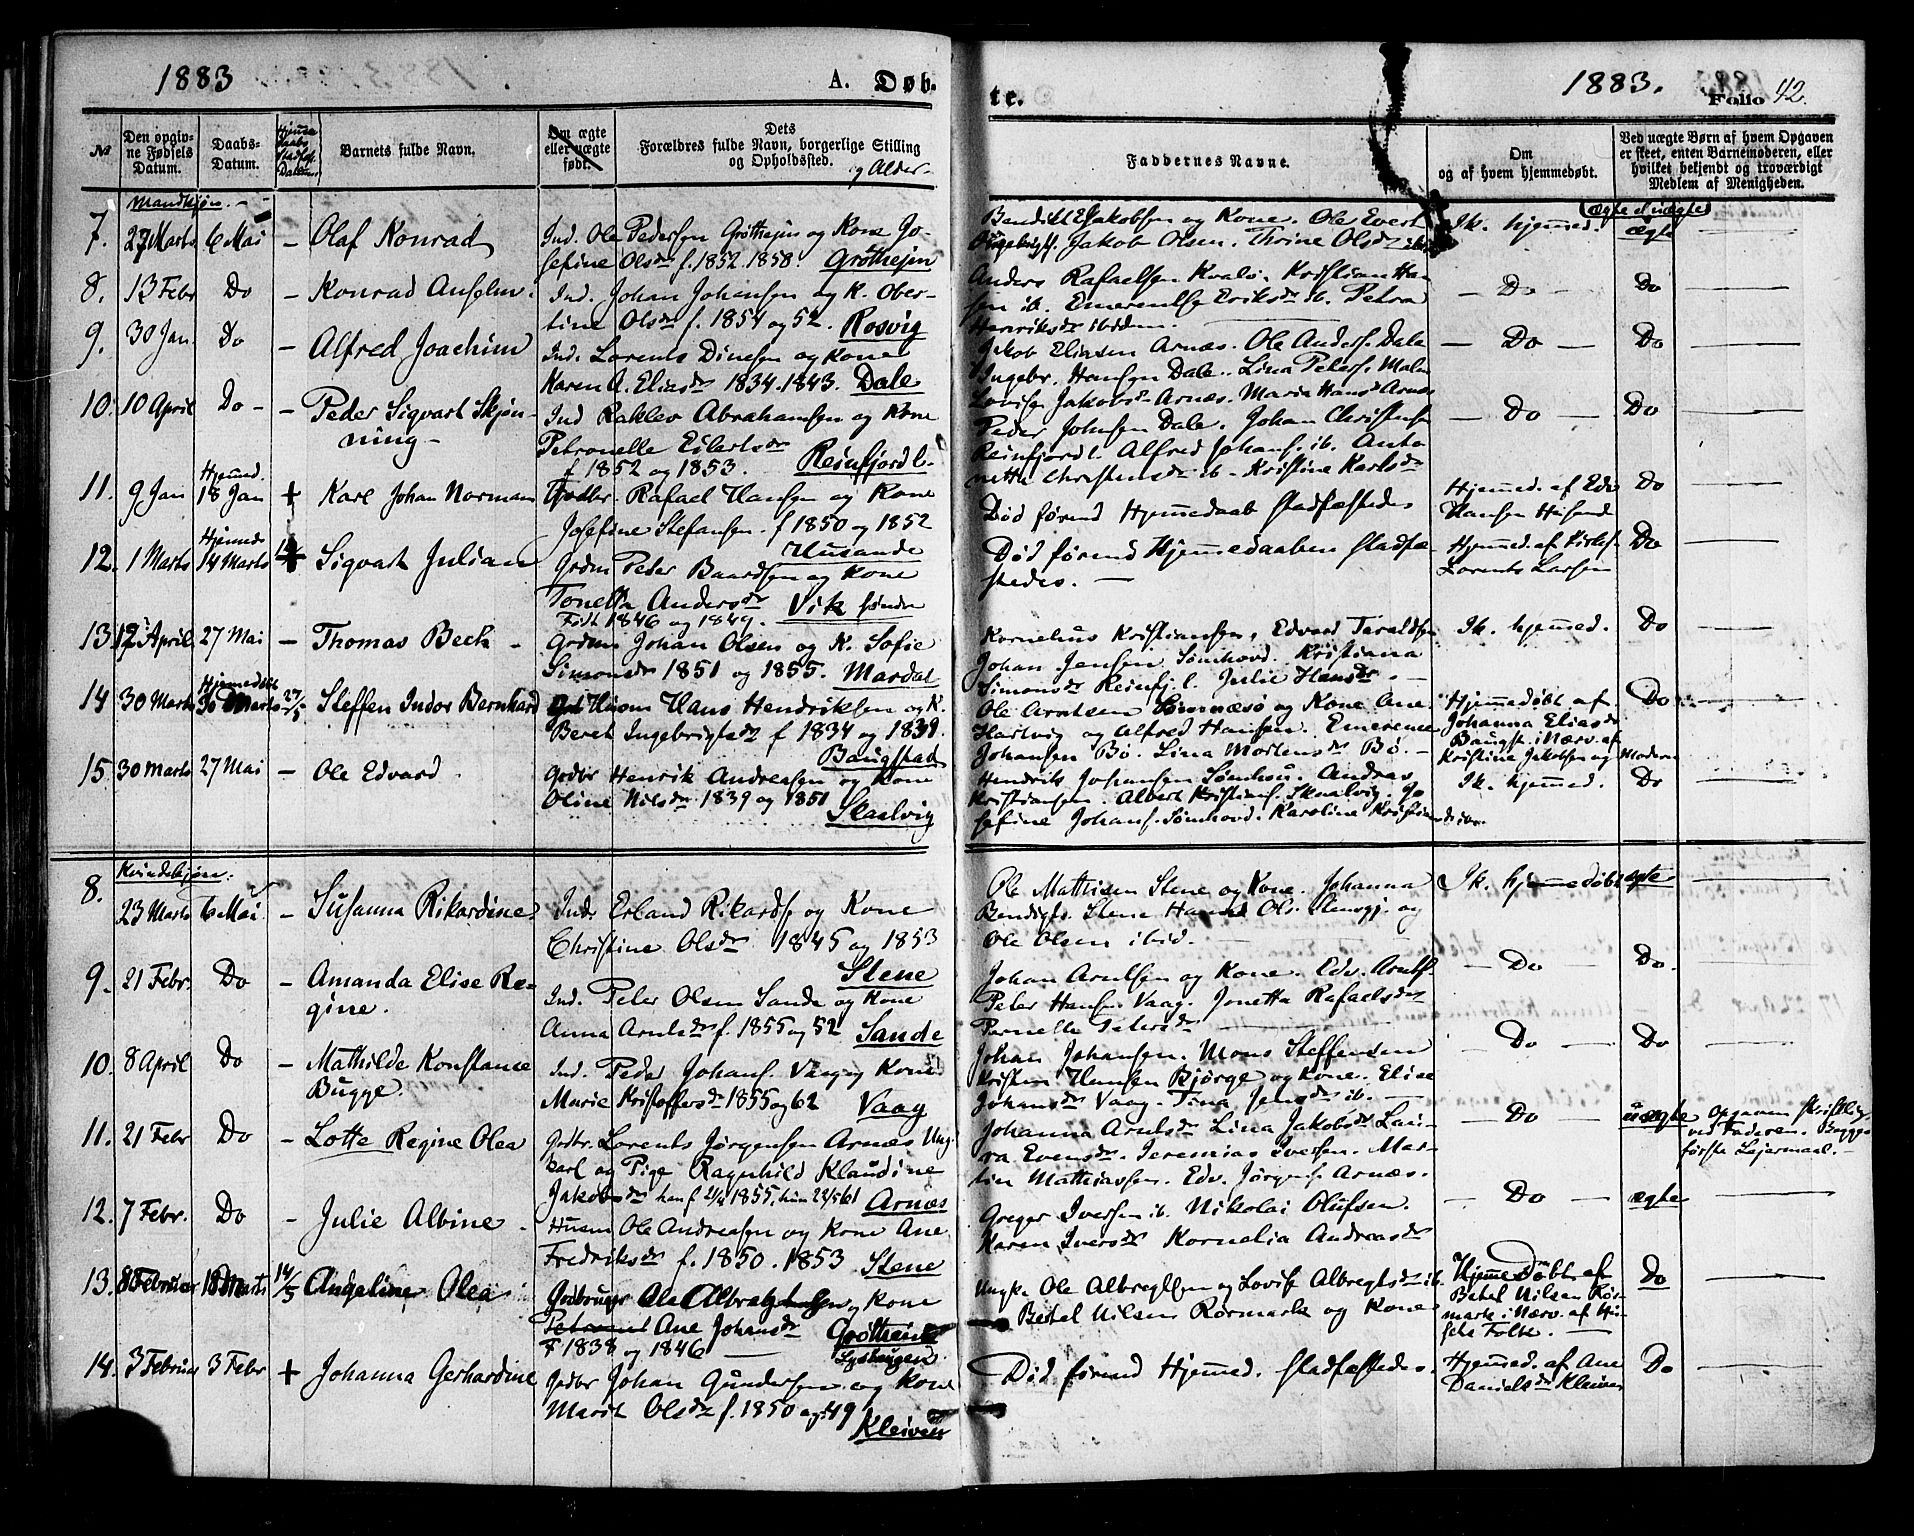 1883
A. Døb-
te.
1883.
Folio 42.
№
Den opgiv-
ne Fødsels
Datum.
Daabs-
Datum.
Barnets fulde Navn.
Om ægte
eller uægte
født.
Dets
Forældres fulde Navn, borgerlige Stilling
og Opholdssted.
og Alder.
Faddernes Navne.
Om
og af hvem hjemmedøbt.
Ved uægte Børn af hvem Opgaven
er skeet, enten Barnemoderen, eller
hvilket bekjendt og troværdigt
Medlem af Menigheden.
Mandkjøn.
ægte el uægte
7. 27 Marts 6 Mai – Olaf Konrad
Ind. Ole Pedersen Grøthejen og Kone Jo-
sefine Olsdr f. 1852. 1858. Grøthejen
Bendikt Jakobsen og Kone. Ole Evert
Jakob Olsen. Thrine Olsdr ib.
Ik. hjemmed. ægte
8. 13 Febr Do – Konrad Anselm.
Ind. Johan Johansen og K. Ober-
tine Olsdr f. 1854 og 52. Rosvig
Anders Rafaelsen Kvalø. Kristian Han-
sen ib. Emerentse Eriksdr ib. Petra
Henriksdr ibidem.
– Do – Do
9. 30 Jan. Do – Alfred Joachim
Ind. Lorents Dinesen og Kone
Karen A. Eliasdr 1834. 1843. Dale
Jakob Eliasen Arnæs. Ole Anders. Dale
Ingebr. Hansen Dale. Lina Peters. Malm
Lovise Jakobsdr Arnæs. Maria Hans Arnæs
– Do – Do
10. 10 April Do – – Peder Sigvart Skjøn-
ning –
Ind Raklev Abrahamsen og Kone
Petronelle Eilertsdr
f 1852 og 1853. Reinfjord l.
Peder Johnsen Dale. Johan Christense
Reinfjord l. Alfred Johans. ib. Anto
nette Christensdr ib – Kristine Karlsdr
– Do – Do
11. 9 Jan Hjemmed. 18 Jan + Karl Johan Norman
Grdbr Rafael Hansen og Kone
Josefine Stefansen. f 1850 og 1852
Husande
Død førend Hjemmedaab stadfæstedes
Hjemmed. af Edv
Hansen Husand
Do
12. 1 Marts Hjemmed 14 Marts + Sigvart Julian
Grdm Peder Baardsen og Kone
Tonetta Andersdr Vik søndre
Født 1846 og 1849.
Død førend Hjemmedaaben stadfæ-
stedes. –
Hjemmed. af Kirkes.
Lorents Larsen
Do
13. 12 April 27 Mai – Thomas Bech –
Grdm Johan Olsen og K. Sofie
Simonsdr 1851 og 1855. Mardal
Kornelius Kristiansen, Edvard Taraldsen
Johan Jensen Sømhovd. Kristiana
Simonsdr Reinfj. l. Julie Hansdr –
Ik. hjemmed. Do
14 30 Marts Hjemmedøbt 30 Marts 27/5 Steffen Indor Bernhard
Husm Hans Hendriksen og K.
Beret Ingebrigtsdr f 1834 og 1839.
Baugstad
Ole Arntsen Sømnæsø og Kone Ane.
Hartvig og Alfred Hansen. Emerence
Johansen Bø. Lina Mortensdr Bø. –
Hjemmedøbt af
Johanna Eliasdr
Baugst. i Nærv. af
Kristine Jakobsen og Modern
Do
15. 30 Marts 27 Mai – Ole Edvard
Grdbr Henrik Andreasen og Kone
Oline Nilsdr 1839 og 1851
Skalvig
Hendrik Johansen Sømhov. Andreas
Kristiansen. Albert Kristians. Skalvig. Jo
sefine Johans. Sømhovd. Karoline Kristian
Ik. hjemmed. Do
Kvindekjøn.
8. 23 Marts 6 Mai. – Susanna Rikardine
Indr Erland Rikards. og Kone
Christine Olsdr 1845 og 1853
Stene
Ole Mathisen Stene og Kone. Johanna
Bendigts. Stene Hans Ols. Stensgj. og
Ole Olsen ibid. –
Ik. hjemmedøbt ægte
9. 21 Febr. Do – Amanda Elise Re-
gine.
Ind. Peter Olsen Sande og Kone
Anna Arntsdr f. 1855 og 52 Sande
Johan Arntsen og Kone. Edv. Arnts.
Peter Hansen Vaag. Jonetta Rafaelsdr
Pernelle Petersdr
– Do – Do.
10. 8 April Do – Mathilde Konstanse
Bugge.
Ind. Peder Johans. Vaag og Kone
Marie Kristoffersdr 1855 og 62 Vaag
Johan Johansen. Mons Steffensen
Kristen Hansen Bjørge og Kone. Elise
Johansdr Vaag. Tina Jensdr ib. –
– Do – Do
11. 21 Febr Do – Lotte Regine Olea
Grdbr. Lorents Jørgensen Arnæs Ung
karl og Pige Ragnhild Klaudine
Jakobsdr han f. 2/4 1855. hun 23/5 61 Arnæs
Johanna Arntsdr Lina Jakobsdr Lau-
ra Evensdr. Jeremias Iversen. Mar-
tin Mathiassen. Edv. Jørgens. Arnæs.
– Do – uægte
Opgaven skriftlig
ved Faderen. Begges
første Lejermaal. –
12. 7 Febr. Do – Julie Albine –
Husm Ole Andreasen og Kone Ane
Fredriksdr f. 1850. 1853 Stene
Greger Iversen ib. Nikolai Olufsen.
Karen Iversdr Kornelia Andreasdr
– Do – ægte
13. 8 Februar 18 Marts 14/5 Angeline Olea
Grdbruger Ole Albregtsen og Kone
Ane Johansdr Grøthejen
F 1838 og 1846 – Lysbaugen
Ungk. Ole Albregtsen og Lovise Albregtsdr ib.
Bertel Nilsen Rørmark og Kone
Hjemmedøbt af
Betel Nilsen Rør-
mark i Nærv. af Hu-
sets Folk. –
Do
14. 3 Februar 3 Febr + Johanna Gerhardine
Grdbr Johan Gundersen og Kone
Marit Olsdr f. 1850 og 49
Kleiven
Død førend Hjemmed. stadfæstedes.
Hjemmed. af Ane
Danielsdr Kleiven
Do